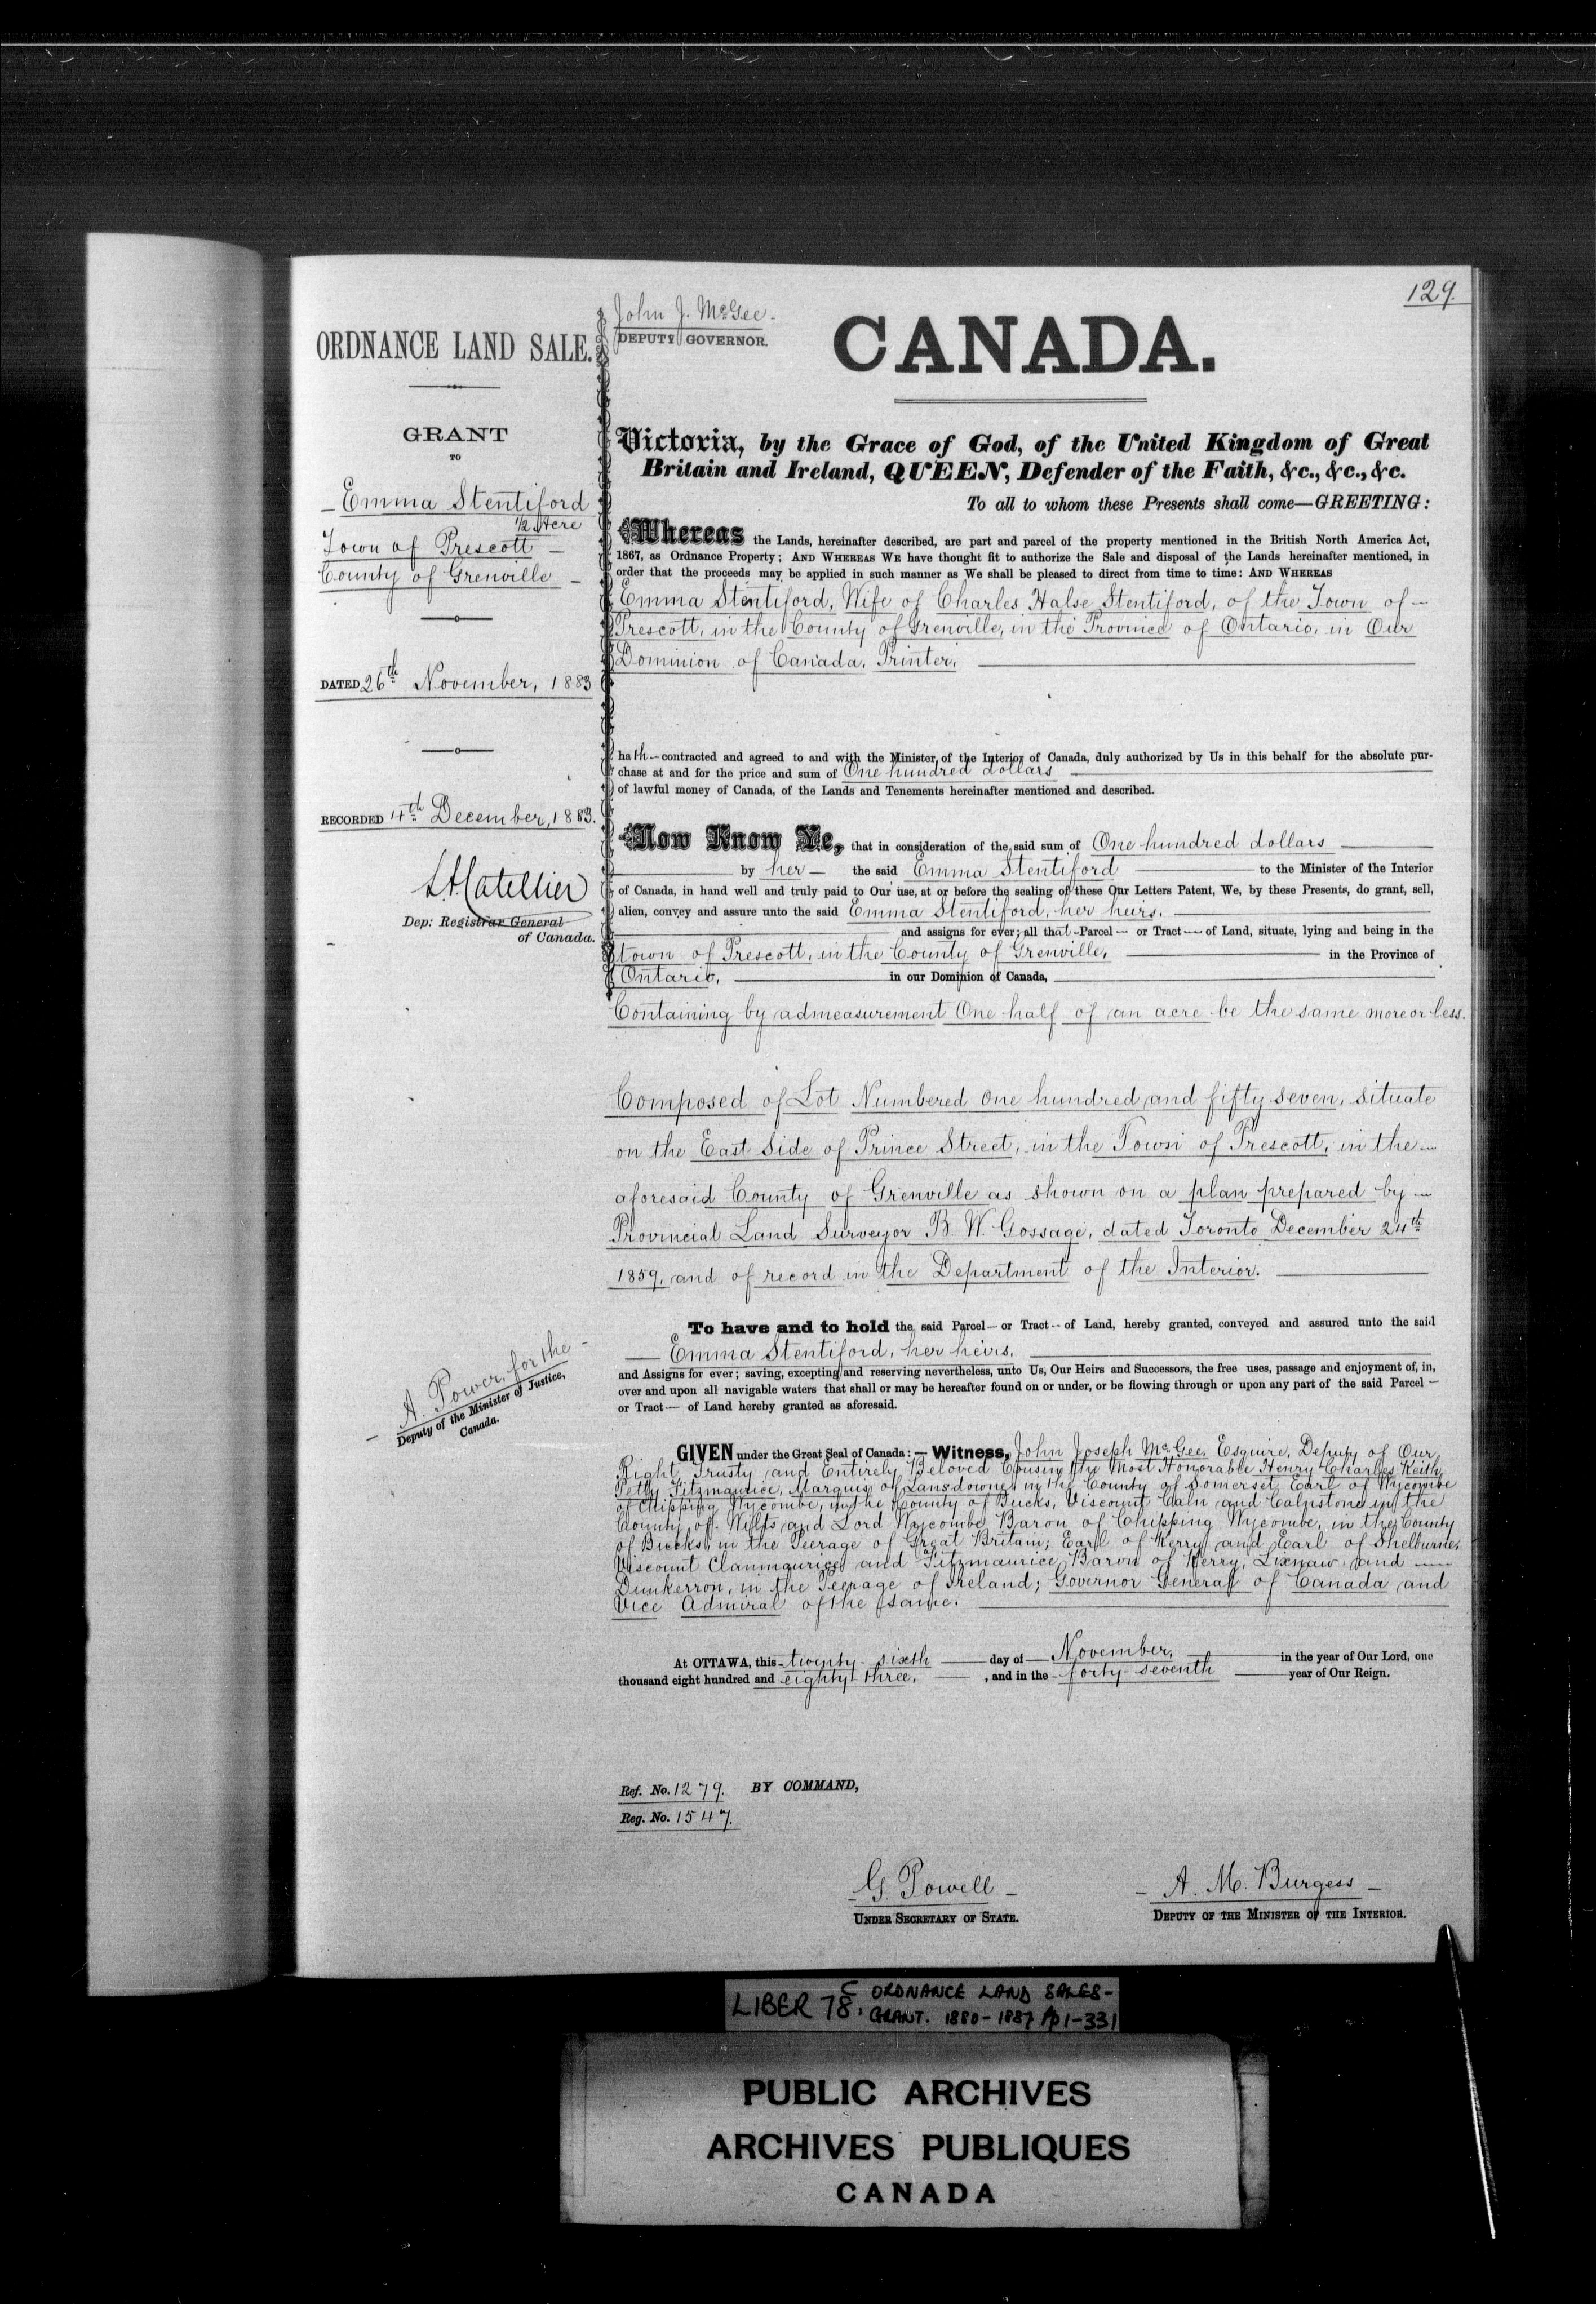 129.
ORDNANCE LAND SALE.
GRANT
TO
Emma Stentiford
1/2 Acre
Town of Prescott
County of Grenville
DATED 26th November, 1883
RECORDED 4th December, 1883.
L.A. Catellier
Dep: Registrar General
of Canada.
A. Power, for the
Deputy of the Minister of Justice,
Canada.
John J. McGee
DEPUTY GOVERNOR.
CANADA.
Victoria, by the Grace of God, of the United Kingdom of Great
Britain and Ireland, QUEEN, Defender of the Faith, &c., &c., &c.
To all to whom these Presents shall come—GREETING:
Whereas the Lands, hereinafter described, are part and parcel of the property mentioned in the British North America Act,
1867, as Ordnance Property; AND WHEREAS WE have thought fit to authorize the Sale and disposal of the Lands hereinafter mentioned, in
order that the proceeds may be applied in such manner as We shall be pleased to direct from time to time: AND WHEREAS
Emma Stentiford, Wife of Charles Halse Stentiford, of the Town of
Prescott, in the County of Grenville, in the Province of Ontario, in Our
Dominion of Canada, Printer,
hath contracted and agreed to and with the Minister of the Interior of Canada, duly authorized by Us in this behalf for the absolute pur-
chase at and for the price and sum of One hundred dollars
of lawful money of Canada, of the Lands and Tenements hereinafter mentioned and described.
Now Know Ye, that in consideration of the said sum of One hundred dollars
by her the said Emma Stentiford to the Minister of the Interior
of Canada, in hand well and truly paid to Our use, at or before the sealing of these Our Letters Patent, We, by these Presents, do grant, sell,
alien, convey and assure unto the said Emma Stentiford, her heirs.
and assigns for ever; all that Parcel or Tract of Land, situate, lying and being in the
town of Prescott, in the County of Grenville, in the Province of
Ontario, in our Dominion of Canada,
Containing by admeasurement One half of an acre be the same more or less.
Composed of Lot Numbered One hundred and fifty seven, situate
on the East Side of Prince Street, in the Town of Prescott, in the
aforesaid County of Grenville as shown on a plan prepared by
Provincial Land Surveyor B. W. Gossage, dated Toronto December 24th
1859, and of record in the Department of the Interior.
To have and to hold the said Parcel or Tract of Land, hereby granted, conveyed and assured unto the said
Emma Stentiford, her heirs,
and Assigns for ever; saving, excepting and reserving nevertheless, unto Us, Our Heirs and Successors, the free uses, passage and enjoyment of, in,
over and upon all navigable waters that shall or may be hereafter found on or under, or be flowing through or upon any part of the said Parcel
or Tract of Land hereby granted as aforesaid.
GIVEN under the Great Seal of Canada:— Witness, John Joseph McGee, Esquire, Deputy of Our
Right Trusty and Entirely Beloved Cousin the Most Honorable Henry Charles Keith
Petty Fitzmaurice, Marquis of Lansdowne, in the County of Somerset, Earl of Wycombe
of Chipping Wycombe, in the County of Bucks, Viscount Caln and Calnstone in the
County of Wilts, and Lord Wycombe, Baron of Chipping Wycombe, in the County
of Bucks, in the Peerage of Great Britain; Earl of Kerry and Earl of Shelburne,
Viscount Clanmaurice and Fitzmaurice, Baron of Kerry, Lixnaw and
Dunkerron, in the Peerage of Ireland; Governor General of Canada and
Vice Admiral of the same.
At OTTAWA, this twenty-sixth day of November, in the year of Our Lord, one
thousand eight hundred and eighty three, , and in the forty-seventh year of Our Reign.
Ref. No. 1279. BY COMMAND,
Reg. No. 1547.
G. Powell
UNDER SECRETARY OF STATE.
A. M. Burgess
DEPUTY OF THE MINISTER OF THE INTERIOR.
LIBER 78C: ORDNANCE LAND SALES-
GRANT. 1880-1887 pp1-331
PUBLIC ARCHIVES
ARCHIVES PUBLIQUES
CANADA